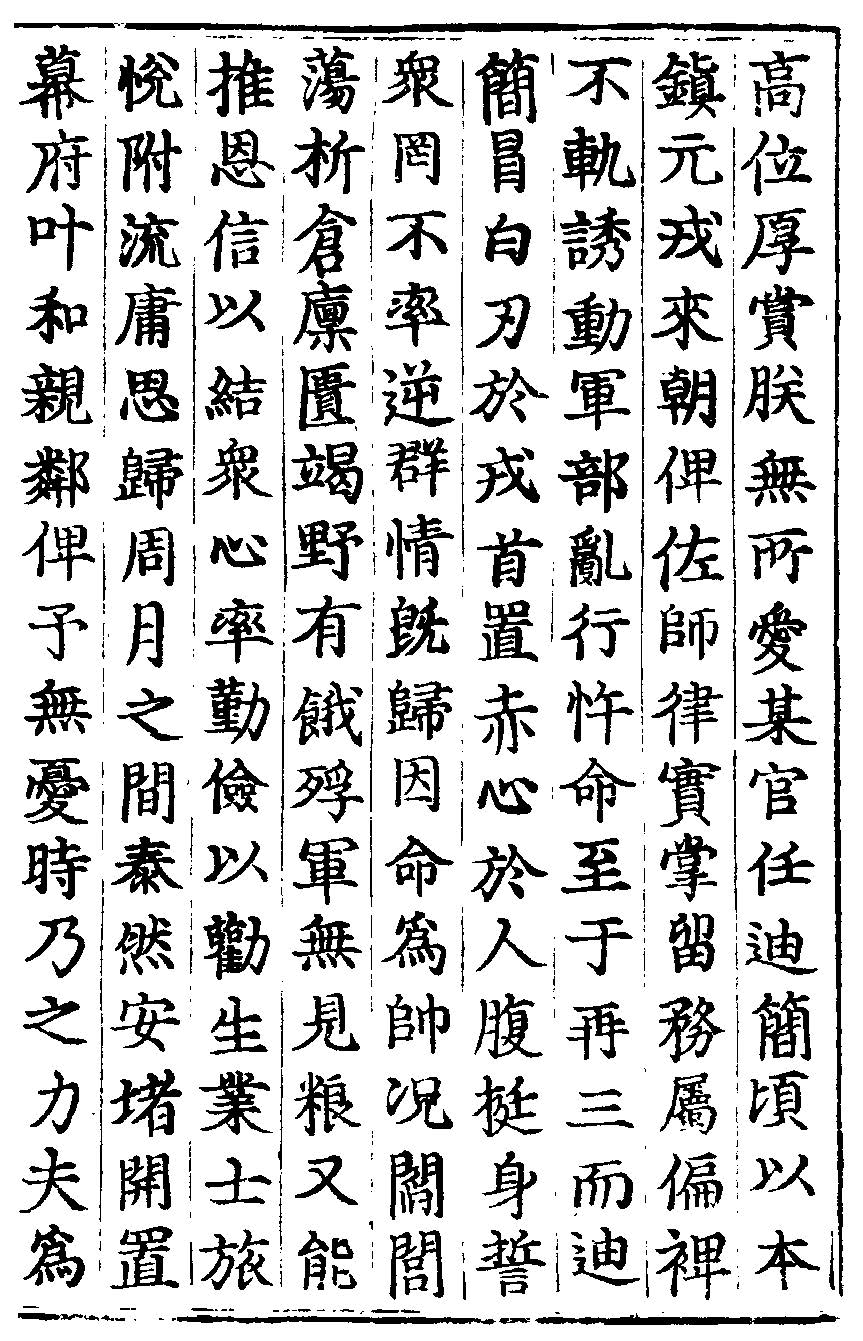 高位厚賞朕無所愛某官任迪簡頃以本
鎮元戎來朝俾佐師律實掌留務屬偏裨
不軌誘動軍部亂行忤命至于再三而迪
簡冒白刃於戎首置赤心於人腹挺身誓
衆罔不率逆群情旣歸因命爲帥况閻閭
蕩析倉廩匱竭野有餓殍軍無見粮又能
推恩信以結衆心率勤儉以勸生業士旅
悅附流庸思歸周月之間泰然安堵開置
幕府叶和親鄰俾予無憂時乃之力夫爲